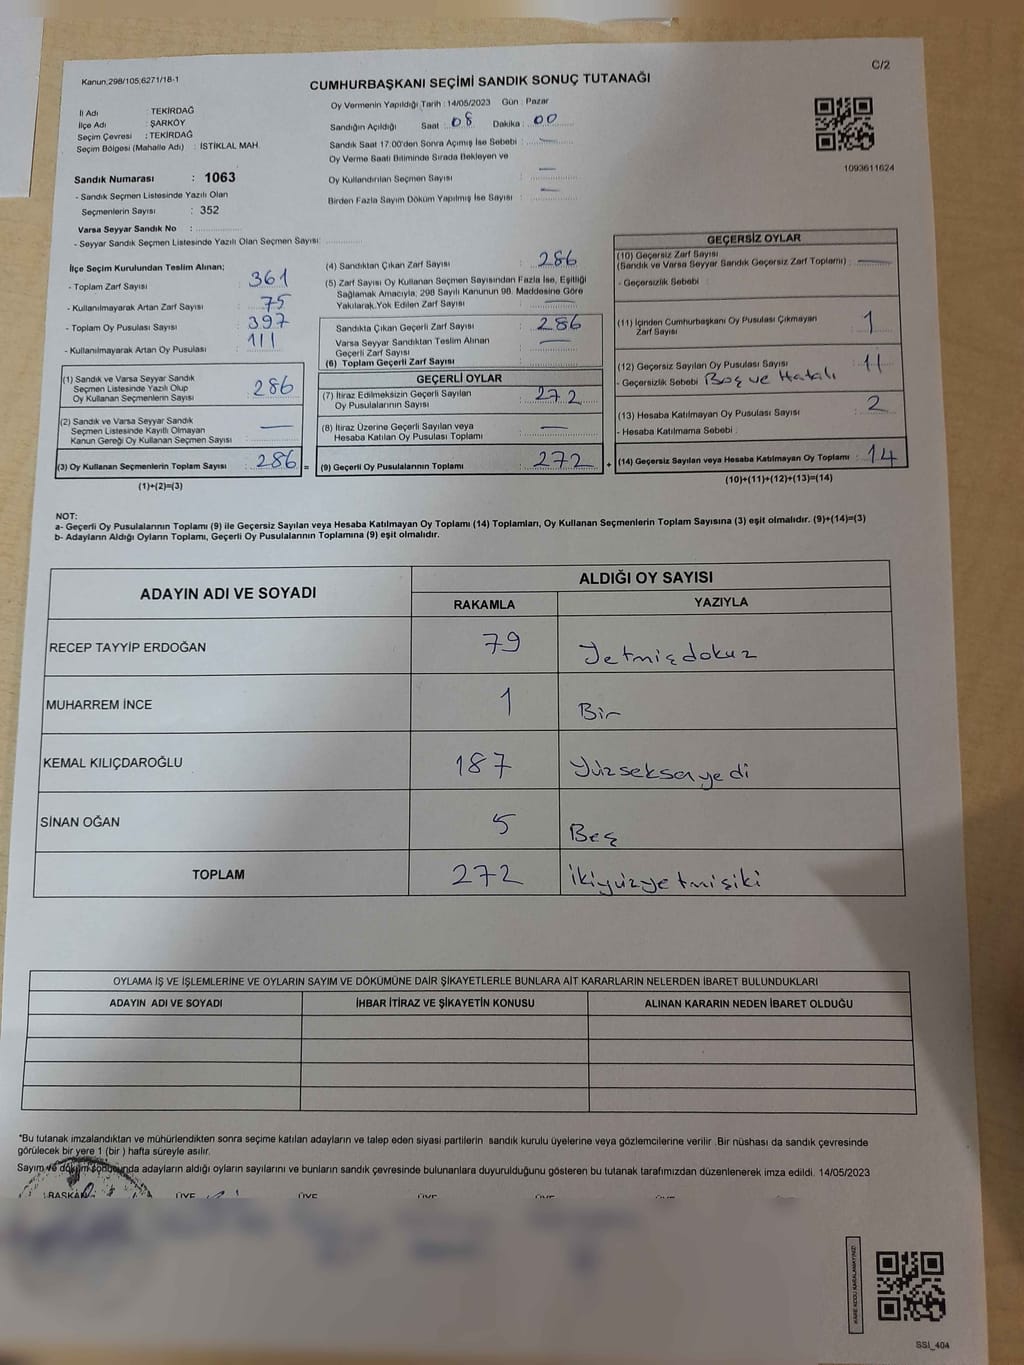 Kanun.298/105,6271/18-1
C/2
CUMHURBAŞKANI SEÇİMİ SANDIK SONUÇ TUTANAĞI
İl Adı : TEKİRDAĞ
İlçe Adı : ŞARKÖY
Seçim Çevresi : TEKİRDAĞ
Seçim Bölgesi (Mahalle Adı) : İSTİKLAL MAH.
Sandık Numarası : 1063
- Sandık Seçmen Listesinde Yazılı Olan
Seçmenlerin Sayısı : 352
Varsa Seyyar Sandık No :
- Seyyar Sandık Seçmen Listesinde Yazılı Olan Seçmen Sayısı:
Oy Vermenin Yapıldığı Tarih : 14/05/2023 Gün : Pazar
Sandığın Açıldığı Saat : 08 Dakika : 00
Sandık Saat 17:00'den Sonra Açımış İse Sebebi : —
Oy Verme Saati Bitiminde Sırada Bekleyen ve
Oy Kullandırılan Seçmen Sayısı : —
Birden Fazla Sayım Döküm Yapılmış İse Sayısı : —
1093611624
İlçe Seçim Kurulundan Teslim Alınan;
- Toplam Zarf Sayısı : 361
- Kullanılmayarak Artan Zarf Sayısı : 75
- Toplam Oy Pusulası Sayısı : 397
- Kullanılmayarak Artan Oy Pusulası : 111
(1) Sandık ve Varsa Seyyar Sandık
Seçmen Listesinde Yazılı Olup
Oy Kullanan Seçmenlerin Sayısı : 286
(2) Sandık ve Varsa Seyyar Sandık
Seçmen Listesinde Kayıtlı Olmayan
Kanun Gereği Oy Kullanan Seçmen Sayısı : —
(3) Oy Kullanan Seçmenlerin Toplam Sayısı : 286 =
(1)+(2)=(3)
(4) Sandıktan Çıkan Zarf Sayısı : 286
(5) Zarf Sayısı Oy Kullanan Seçmen Sayısından Fazla İse, Eşitliği
Sağlamak Amacıyla; 298 Sayılı Kanunun 98. Maddesine Göre
Yakılarak,Yok Edilen Zarf Sayısı : —
Sandıkta Çıkan Geçerli Zarf Sayısı : 286
Varsa Seyyar Sandıktan Teslim Alınan
Geçerli Zarf Sayısı : —
(6) Toplam Geçerli Zarf Sayısı :
GEÇERLİ OYLAR
(7) İtiraz Edilmeksizin Geçerli Sayılan
Oy Pusulalarının Sayısı : 272
(8) İtiraz Üzerine Geçerli Sayılan veya
Hesaba Katılan Oy Pusulası Toplamı : —
(9) Geçerli Oy Pusulalarının Toplamı : 272 +
GEÇERSİZ OYLAR
(10) Geçersiz Zarf Sayısı
(Sandık ve Varsa Seyyar Sandık Geçersiz Zarf Toplamı) : —
- Geçersizlik Sebebi :
(11) İçinden Cumhurbaşkanı Oy Pusulası Çıkmayan
Zarf Sayısı : 1
(12) Geçersiz Sayılan Oy Pusulası Sayısı : 11
- Geçersizlik Sebebi : Boş ve Hatalı
(13) Hesaba Katılmayan Oy Pusulası Sayısı : 2
- Hesaba Katılmama Sebebi :
(14) Geçersiz Sayılan veya Hesaba Katılmayan Oy Toplamı : 14
(10)+(11)+(12)+(13)=(14)
NOT:
a- Geçerli Oy Pusulalarının Toplamı (9) ile Geçersiz Sayılan veya Hesaba Katılmayan Oy Toplamı (14) Toplamları, Oy Kullanan Seçmenlerin Toplam Sayısına (3) eşit olmalıdır. (9)+(14)=(3)
b- Adayların Aldığı Oyların Toplamı, Geçerli Oy Pusulalarının Toplamına (9) eşit olmalıdır.
ADAYIN ADI VE SOYADI ALDIĞI OY SAYISI
RAKAMLA YAZIYLA
RECEP TAYYİP ERDOĞAN 79 Yetmişdokuz
MUHARREM İNCE 1 Bir
KEMAL KILIÇDAROĞLU 187 Yüzseksenyedi
SİNAN OĞAN 5 Beş
TOPLAM 272 İkiyüzyetmişiki
OYLAMA İŞ VE İŞLEMLERİNE VE OYLARIN SAYIM VE DÖKÜMÜNE DAİR ŞİKAYETLERLE BUNLARA AİT KARARLARIN NELERDEN İBARET BULUNDUKLARI
ADAYIN ADI VE SOYADI İHBAR İTİRAZ VE ŞİKAYETİN KONUSU ALINAN KARARIN NEDEN İBARET OLDUĞU
*Bu tutanak imzalandıktan ve mühürlendikten sonra seçime katılan adayların ve talep eden siyasi partilerin sandık kurulu üyelerine veya gözlemcilerine verilir. Bir nüshası da sandık çevresinde
görülecek bir yere 1 (bir ) hafta süreyle asılır.
Sayım ve döküm sonucunda adayların aldığı oyların sayılarını ve bunların sandık çevresinde bulunanlara duyurulduğunu gösteren bu tutanak tarafımızdan düzenlenerek imza edildi. 14/05/2023
BAŞKAN ÜYE ÜYE ÜYE ÜYE
KARE KODU KARALAMAYINIZ!
SSİ_404